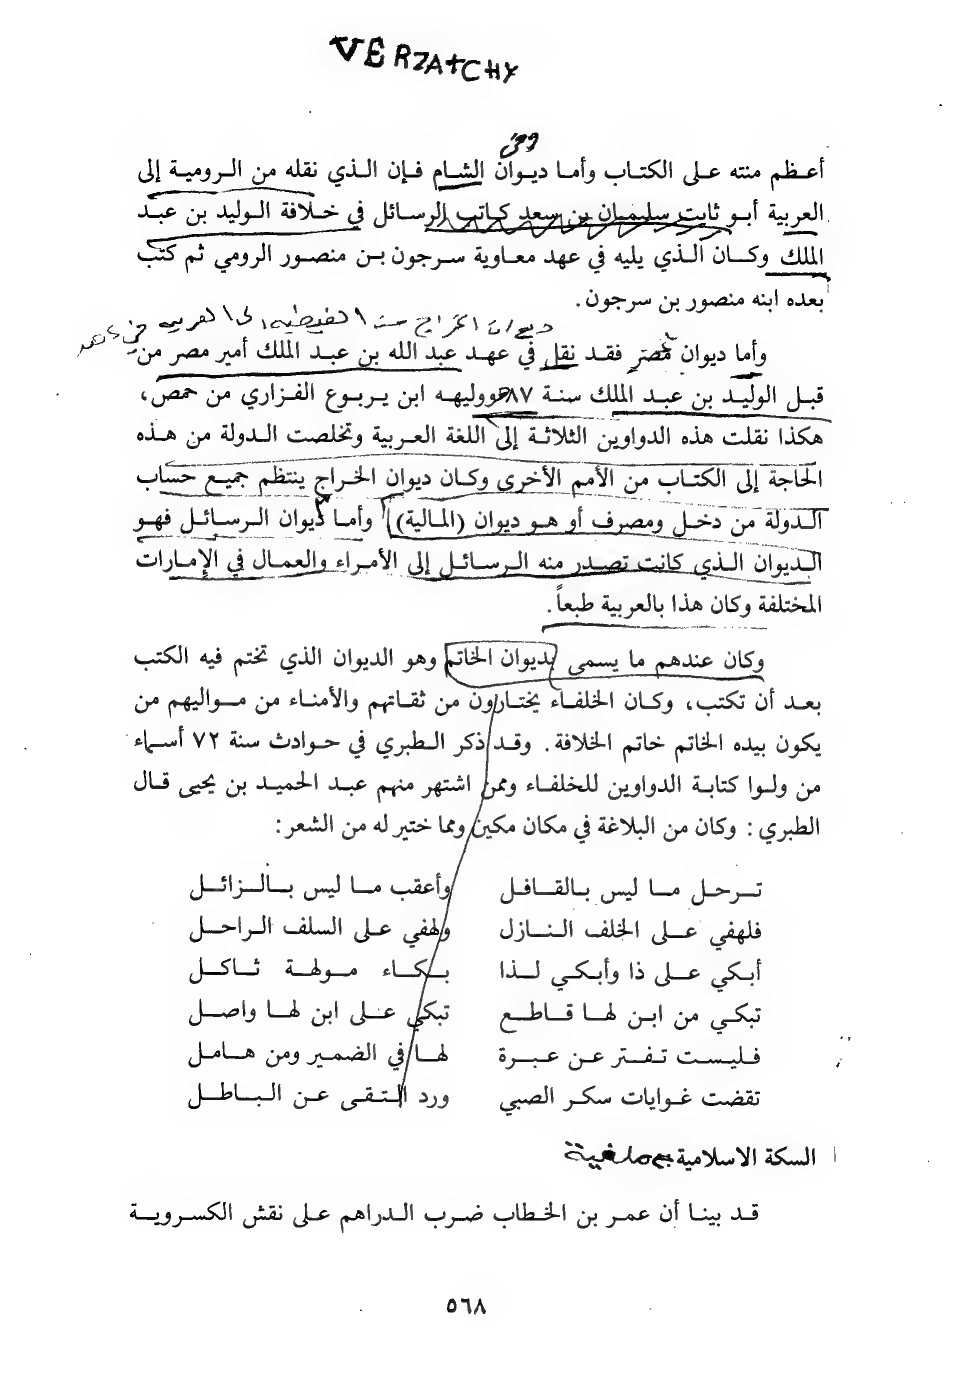 VERZATCHY
أعظم منته على الكتاب وأما ديوان الشام فإن الذي نقله من الرومية إلى
العربية أبو ثابت سليمان بن سعد كاتب الرسائل في خلافة الوليد بن عبد
الملك وكان الذي يليه في عهد معاوية سرجون بن منصور الرومي ثم كتب
بعده ابنه منصور بن سرجون.
ديوان الخراج من القبطية الى العربية في
وأما ديوان مصر فقد نقل في عهد عبد الله بن عبد الملك أمير مصر من
قبل الوليد بن عبد الملك سنة ٨٧ ووليه ابن يربوع الفزاري من حمص،
هكذا نقلت هذه الدواوين الثلاثة إلى اللغة العربية وتخلصت الدولة من هذه
الحاجة إلى الكتاب من الأمم الأخرى وكان ديوان الخراج ينتظم جميع حساب
الدولة من دخل ومصرف أو هو ديوان (المالية) وأما ديوان الرسائل فهو
الديوان الذي كانت تصدر منه الرسائل إلى الأمراء والعمال في الإمارات
المختلفة وكان هذا بالعربية طبعاً.
وكان عندهم ما يسمى بديوان الخاتم وهو الديوان الذي تختم فيه الكتب
بعد أن تكتب، وكان الخلفاء يختارون من ثقاتهم والأمناء من مواليهم من
يكون بيده الخاتم خاتم الخلافة. وقد ذكر الطبري في حوادث سنة ٧٢ أسماء
من ولوا كتابة الدواوين للخلفاء وممن اشتهر منهم عبد الحميد بن يحيى قال
الطبري: وكان من البلاغة في مكان مكين ومما ختير له من الشعر:
ترحل ما ليس بالقافل وأعقب ما ليس بالزائل
فلهفي على الخلف النازل ولهفي على السلف الراحل
أبكي على ذا وأبكي لذا بكاء مولهة ثاكل
تبكي من ابن لها قاطع تبكي على ابن لها واصل
فليست تفتر عن عبرة لها في الضمير ومن هامل
تقضت غوايات سكر الصبي ورد التقى عن الباطل
السكة الاسلامية
قد بينا أن عمر بن الخطاب ضرب الدراهم على نقش الكسروية
٥٦٨